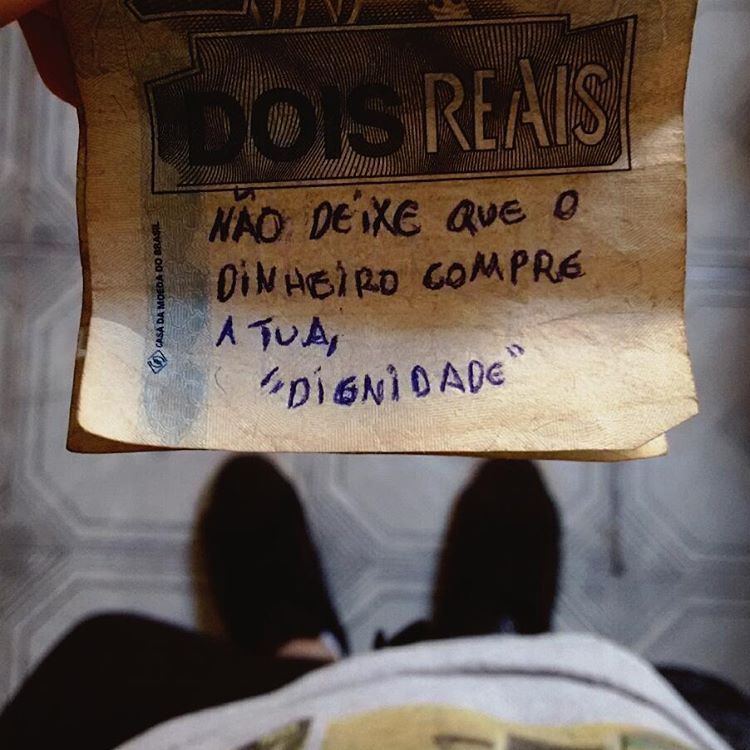 DOIS REAIS
NÃO DEIXE QUE O
DINHEIRO COMPRE
A TUA,
"DIGNIDADE"
CASA DA MOEDA DO BRASIL